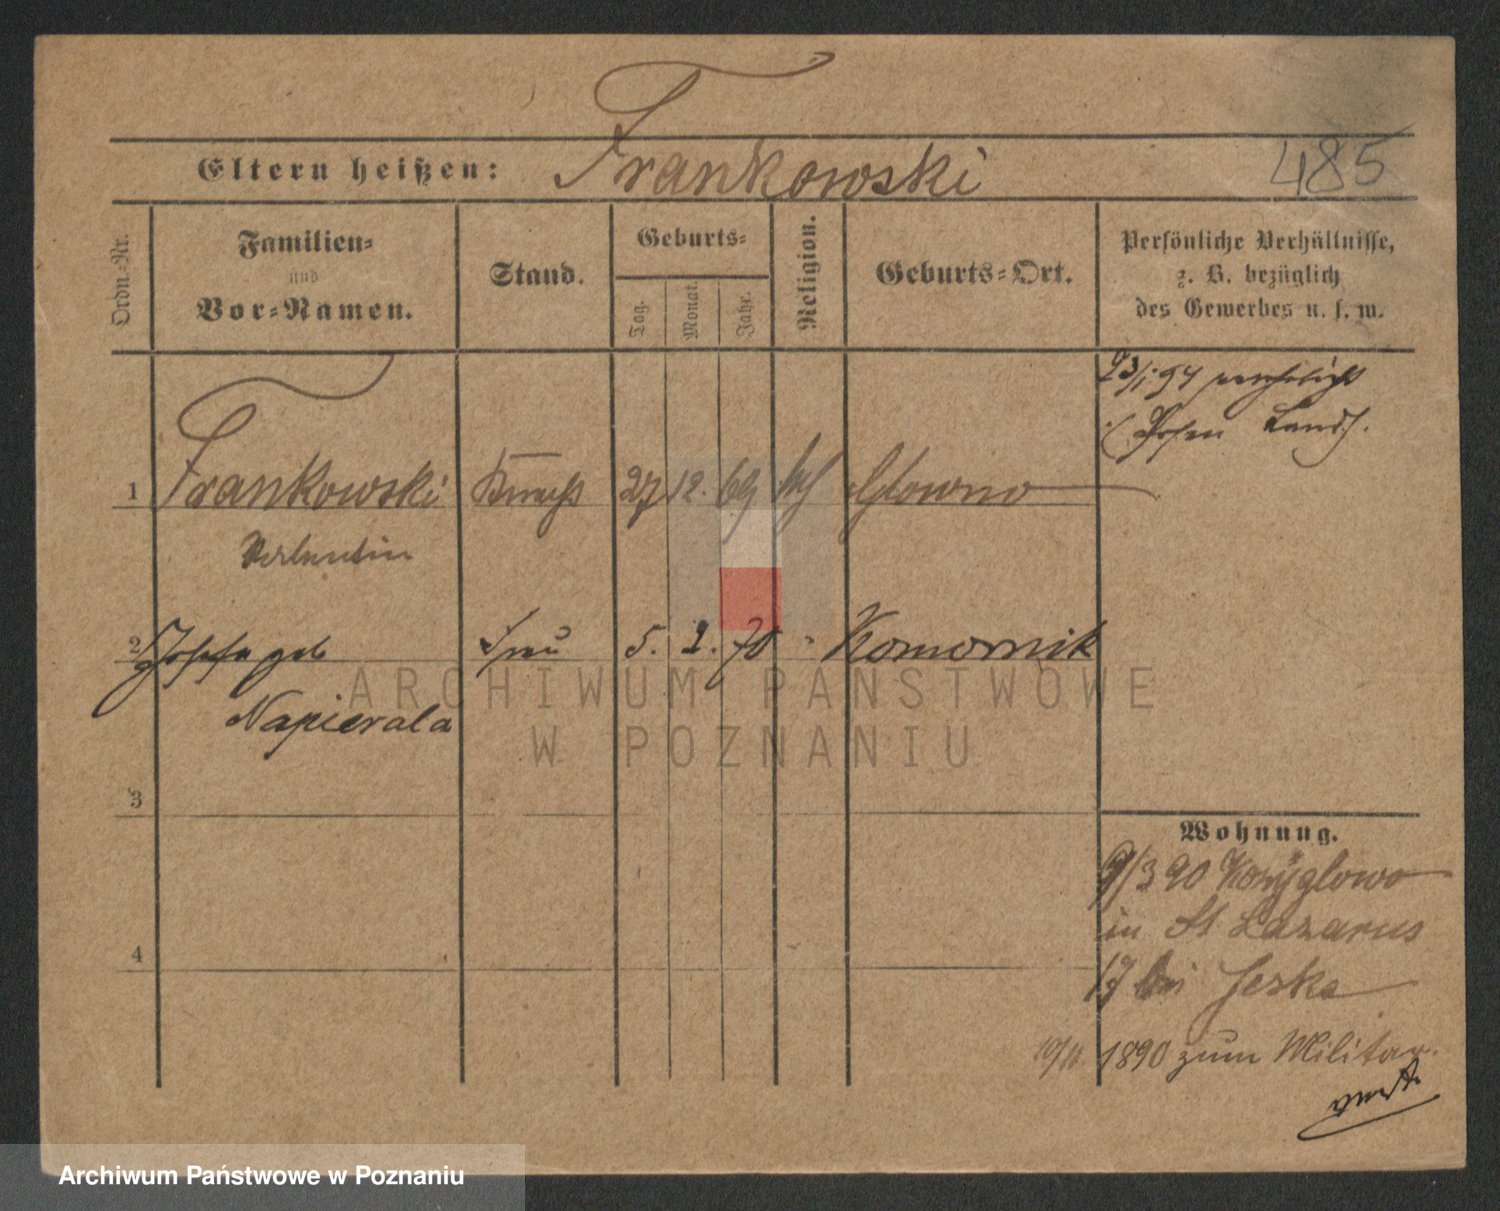 Eltern heißen: Frankowski 485
Ordn.-Nr.
Familien-
und
Vor-Namen.
Stand.
Geburts-
Tag.
Monat.
Jahr.
Religion.
Geburts-Ort.
Persönliche Verhältnisse,
z. B. bezüglich
des Gewerbes u. s. w.
23/1 94 verehelicht
Posen Lands.
1 Frankowski 27 12. 69 kth Glowno
Valentin
2 Josefa geb Frau 5. 2. 70 Komornik
Napierala
3
Wohnung.
9/3 90
in St Lazarus
4
17 bei Jeska
10/11. 1890 zum Militär.
ARCHIWUM PAŃSTWOWE
W POZNANIU
Archiwum Państwowe w Poznaniu